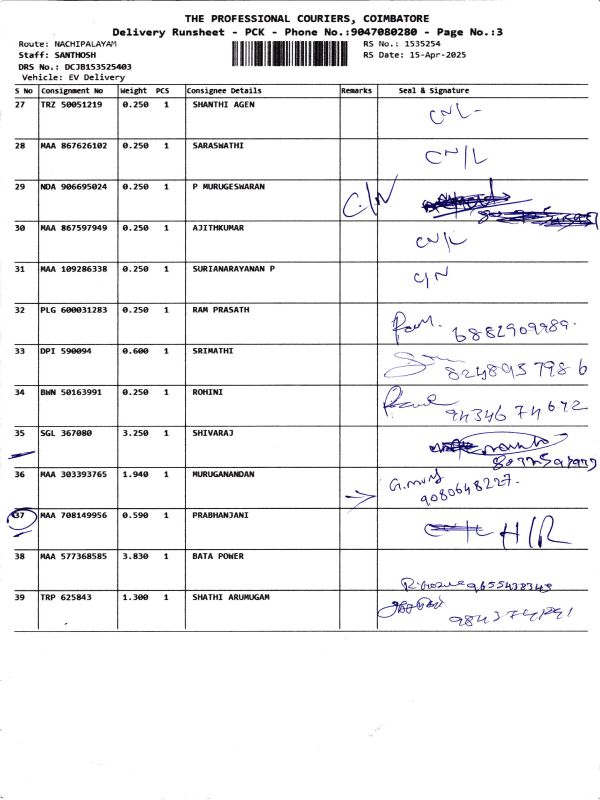 THE PROFESSIONAL COURIERS, COIMBATORE
Delivery Runsheet - PCK - Phone No.:9047080280 - Page No.:3
Route: NACHIPALAYAM RS No.: 1535254
Staff: SANTHOSH RS Date: 15-Apr-2025
DRS No.: DCJB153525403
Vehicle: EV Delivery
S No Consignment No Weight PCS Consignee Details Remarks Seal & Signature
27 TRZ 50051219 0.250 1 SHANTHI AGEN CNL-
28 MAA 867626102 0.250 1 SARASWATHI CN/L
29 NDA 906695024 0.250 1 P MURUGESWARAN C/N
30 MAA 867597949 0.250 1 AJITHKUMAR CN/L
31 MAA 109286338 0.250 1 SURIANARAYANAN P C/N
32 PLG 600031283 0.250 1 RAM PRASATH 6882909989.
33 DPI 590094 0.600 1 SRIMATHI 8248957986
34 BWN 50163991 0.250 1 ROHINI 9434674672
35 SGL 367080 3.250 1 SHIVARAJ
36 MAA 303393765 1.940 1 MURUGANANDAN G.
9080648227.
37 MAA 708149956 0.590 1 PRABHANJANI H/R
38 MAA 577368585 3.830 1 BATA POWER 9655438349
39 TRP 625843 1.300 1 SHATHI ARUMUGAM